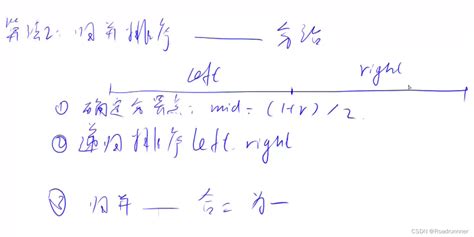 算法2: 归并排序 —— 分治
left right
① 确定分界点: mid = (l+r) / 2
② 递归排序 left, right
③ 归并 —— 合二为一
CSDN @Roadrunner